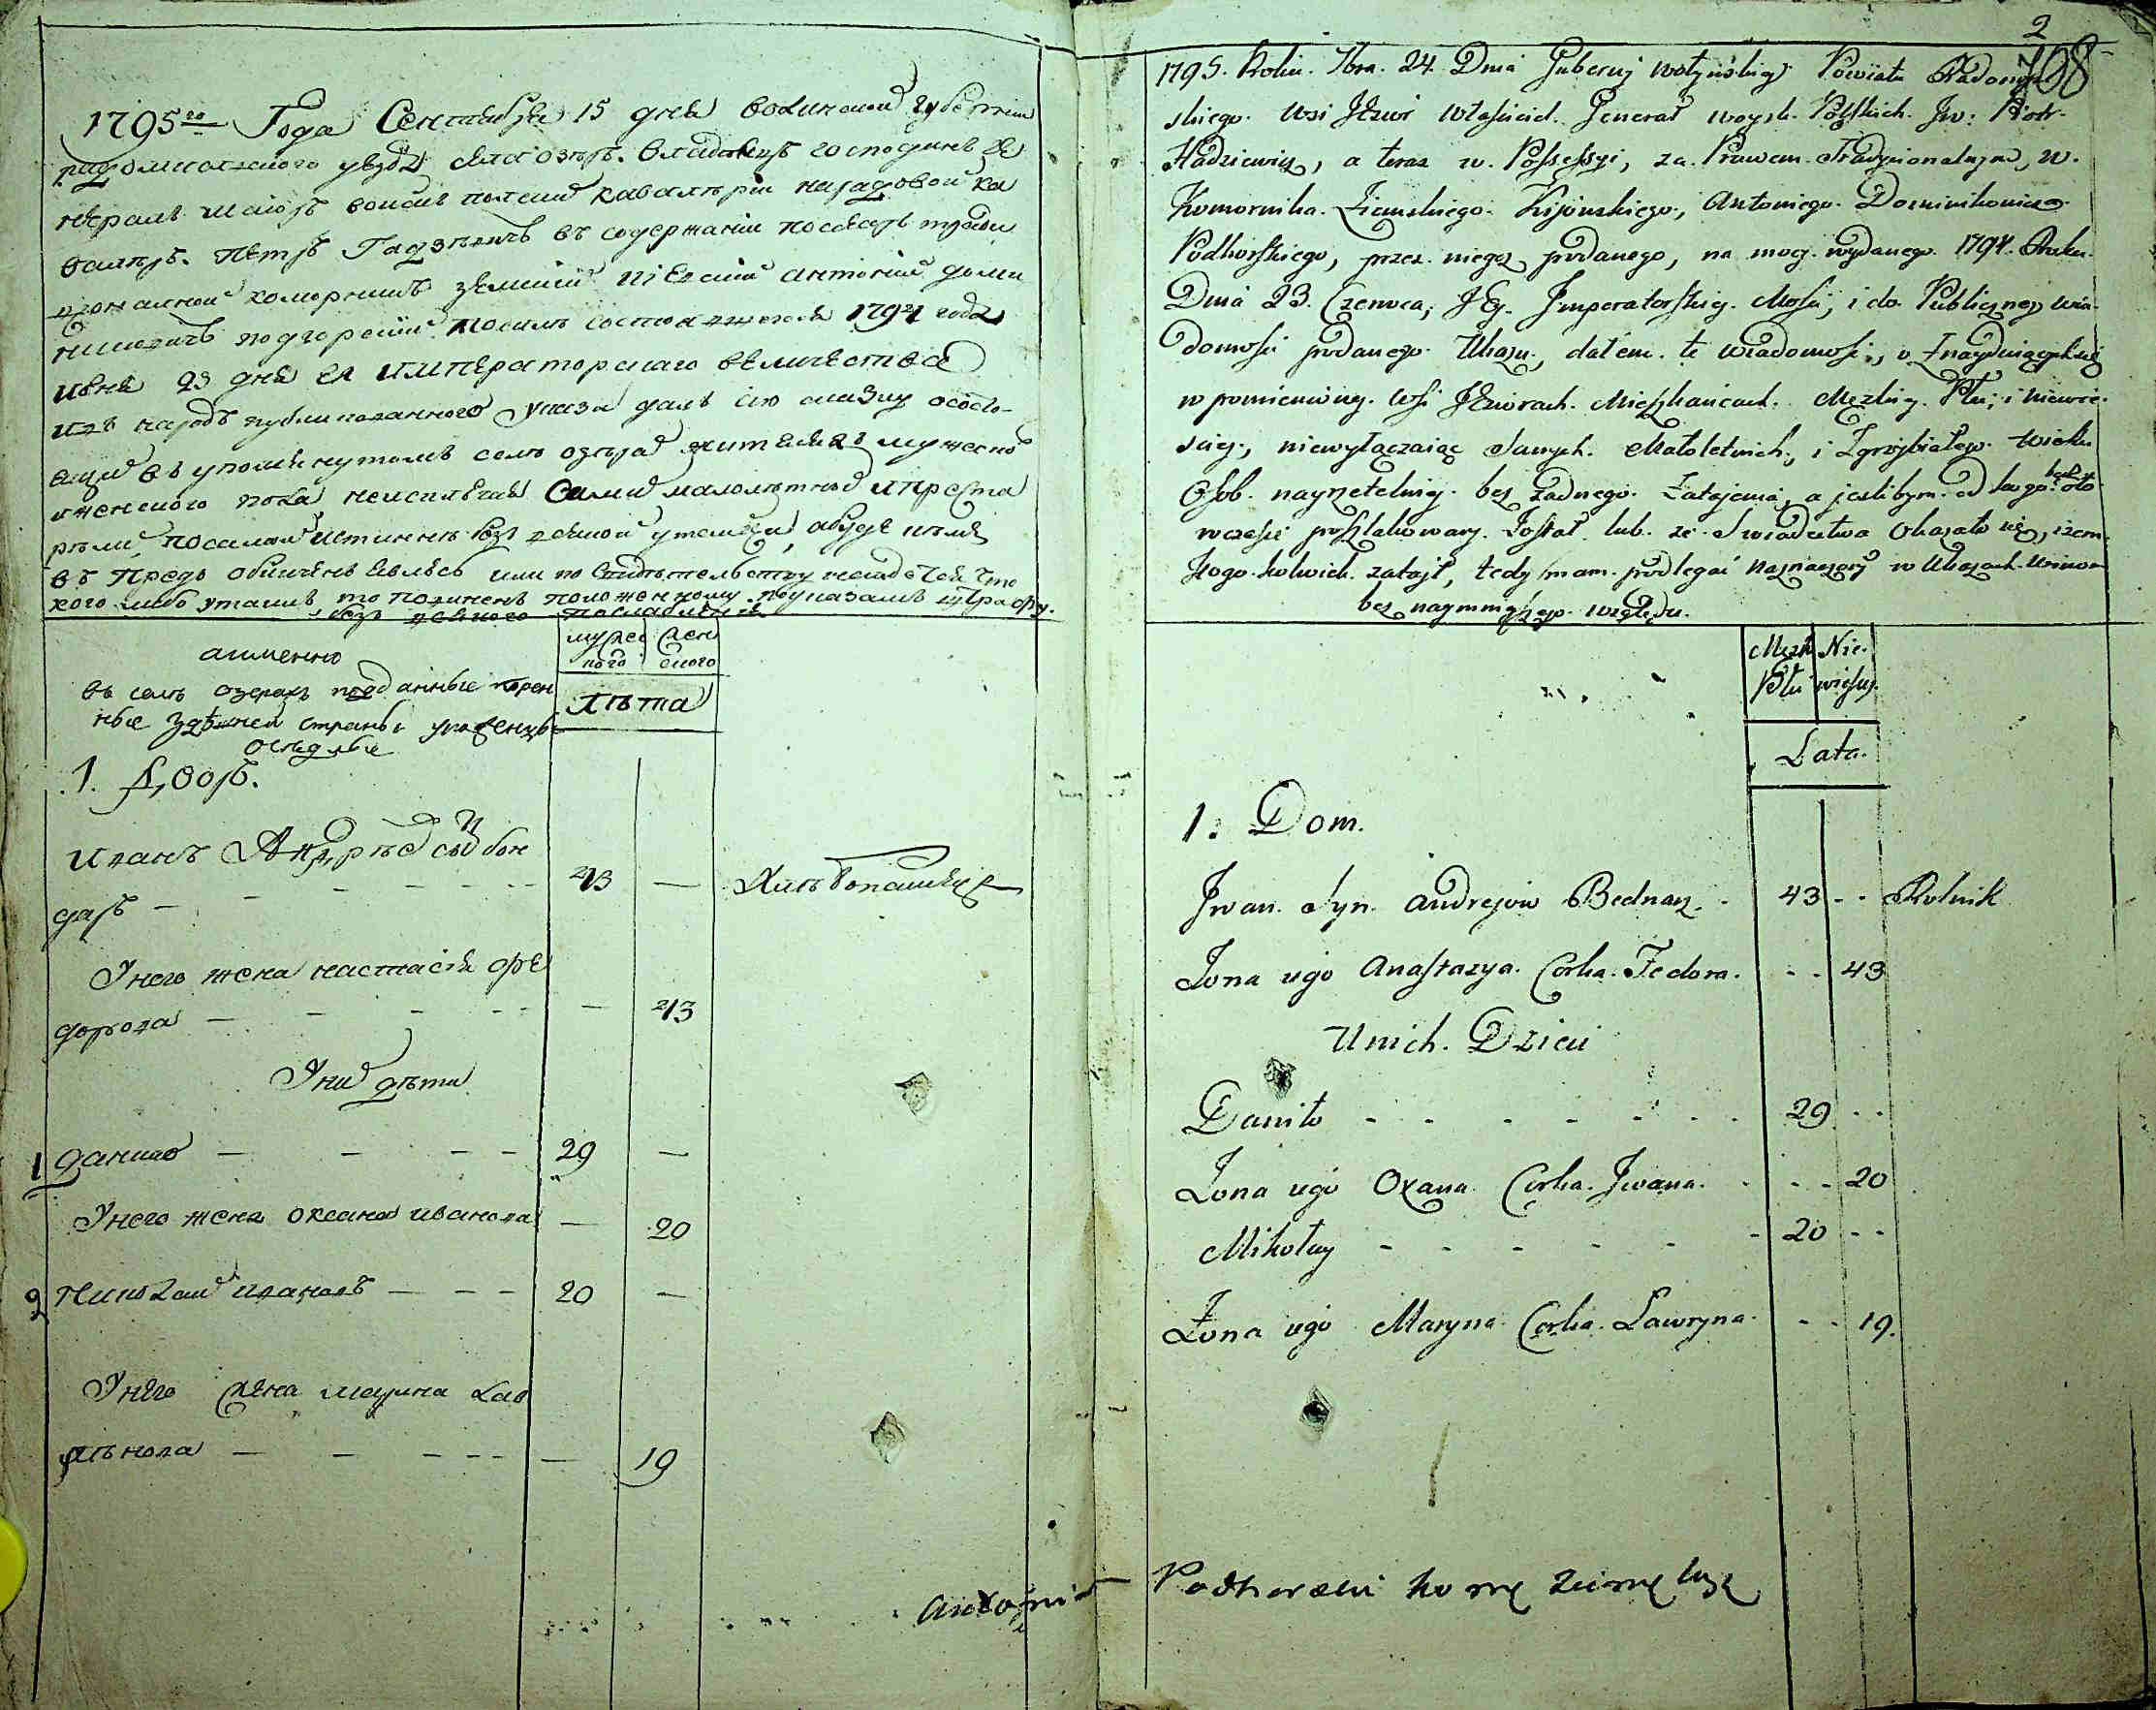 1795го Года Сентября 15 дня волинской губернии
радомисльского уезда села озеръ. владелецъ господинъ ге
нералъ маіоръ войскъ полскихъ кавалеріи народовой ка
валеръ. Петръ Гадзевичъ въ содержаніи посесоръ тради
ціоналной коморникъ земскій кіевскій антоній доми
никовичъ подгорскій по силѣ состоявшегося 1794 года
июня 23 дня ея императорскаго величества
въ народъ публикованного указа далъ сію сказку о
въ упомянутомъ селѣ озерах жителяхъ мужеска
и женского пола неисключая самих малолетных и преста
релих, по самой истинне безъ всякой утайки, а буде
въ предь обличенъ явлюсь или по свидетелству что
кого либо утаилъ то повиненъ положенному по указамъ штрафу.
безъ всякого послабленія
а именно
въ селѣ озерахъ подданные корен
ные здѣшней страны уроженцы
оседлые
муже
ского
жен
ского
лѣта
1. Дворъ.
иванъ Андреевъ сынъ бон
даръ — 43 — Хлебопашецъ
У него жена настасія фе
дорова — — 43
У них дѣти
1 данило — 29 —
У него жена оксана иванова — 20
2 николай ивановъ — 20 —
У него жена марина лав
рѣнова — — 19
Antoni
2
708
1795. Roku. 7bra. 24. Dnia Guberny wołyńskiey Powiatu Radomysl
skiego. Wsi Jezior Właściciel. Generał woysk. Polskich. Jw: Piotr.
Hadziewicz, a teraz w. Possessyi, za. Prawem. Tradycionalnym, w.
Komornika. Ziemskiego. Kijowskiego, Antoniego. Dominikowicza
Podhorskiego, przez. niego podanego, na mocy. wydanego. 1794. Roku.
Dnia 23. Czerwca, JEy. Imperatorskiey. Mości, i do. Publiczney wia-
domości podanego. Ukazu, dałem. tę wiadomość, o Znayduiących się
w pomienioney. wsi Jeziorach. Mieszkańcach. Męzkiey. Płci, i niewie-
sciey, niewyłączaiąc Samych. Małoletnich, i Zgrzybiałego. wieku
Osob. nayrzetelniey. bez żadnego. Zatajenia, a jeslibym. od kogo. bądź oto
wczasie poszlakowany. Został. lub. ze. Swiadectwa Okazało się, iżem.
kogo. kolwiek. zataił, tedy mam. podlegać naznaczoney w Ukazach. winie
bez naymnieyszego. względu.
Męzk Nie-
Płci wiesciey.
Lata.
1. Dom.
Jwan. Syn. Andrejow Bednarz. - 43 - - Rolnik
Zona iego Anastazya. Corka. Fedora. - - 43
Unich. Dzieci
Daniło - - - - - - 29 - -
Zona iego Oxana. Corka. Jwana. - - - 20
Mikołay - - - - - - 20 - -
Zona iego Maryna Corka. Lawryna. - - 19.
Podhorski